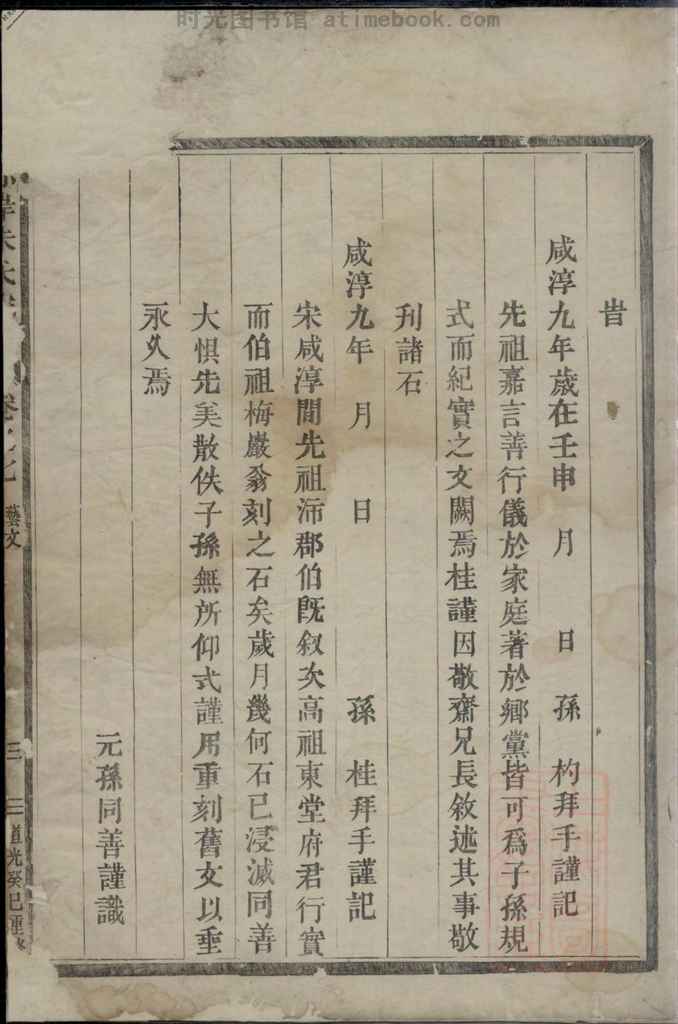 时光图书馆 atimebook.com
昔
咸淳九年歲在壬申 月 日 孫 杓拜手謹記
先祖嘉言善行儀於家庭著於鄉黨皆可爲子孫規
式而紀實之文闕焉桂謹因敬齋兄長敘述其事敬
刋諸石
咸淳九年 月 日 孫 桂拜手謹記
宋咸淳間先祖沛郡伯旣叙次高祖東堂府君行實
而伯祖梅巖翁刻之石矣歲月幾何石已浸滅同善
大惧先美散佚子孫無所仰式謹用重刻舊文以垂
永久焉
元孫同善謹識
朱氏
卷之七 藝文
三
道光癸巳重修